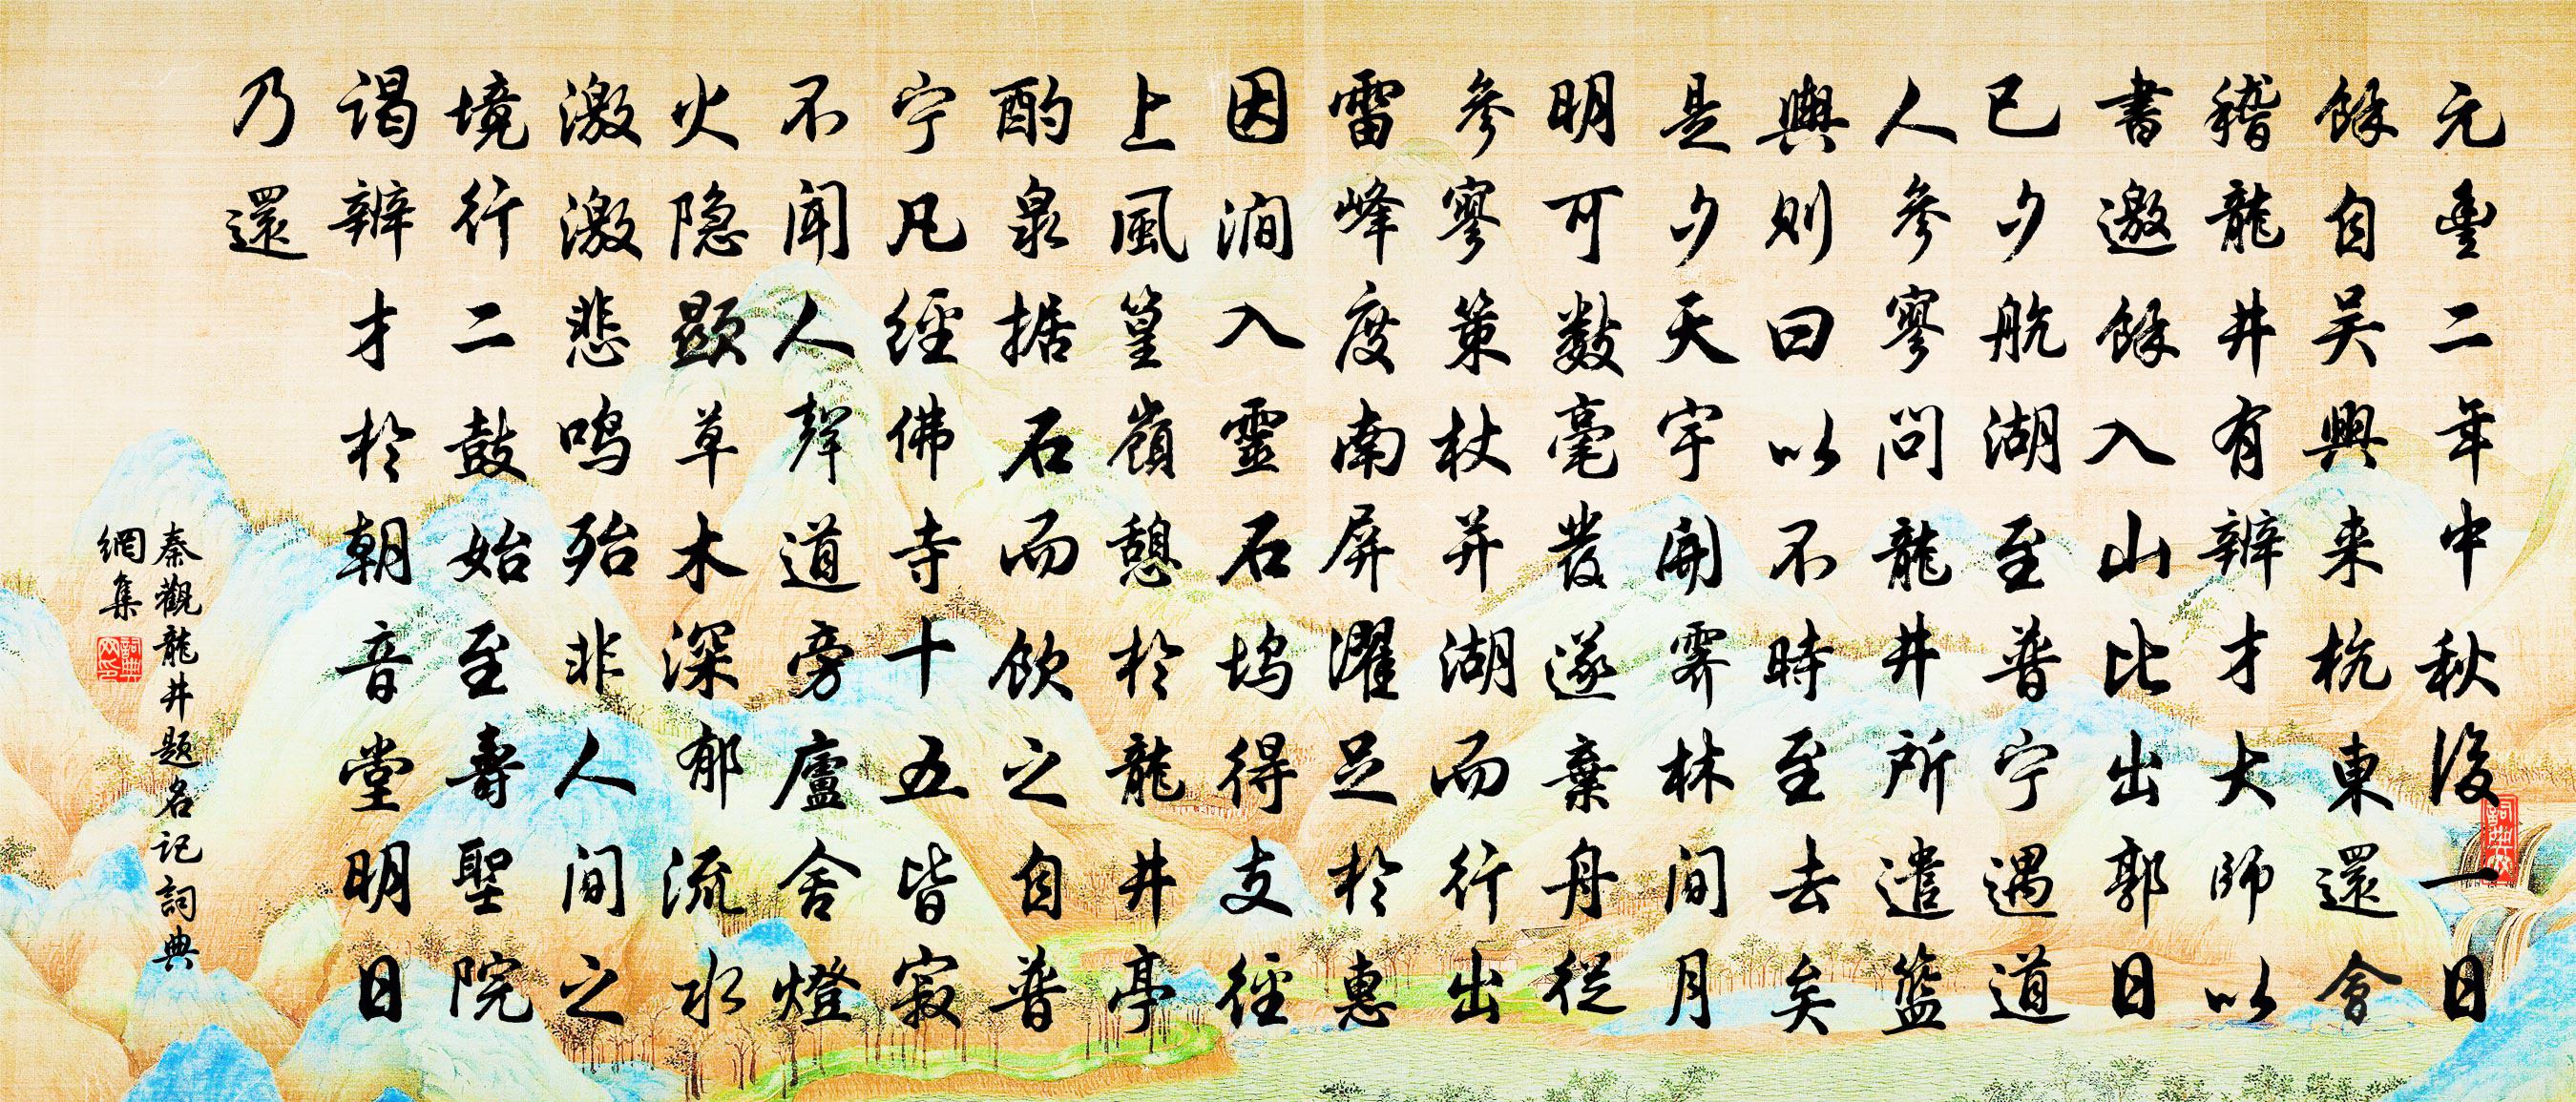 元豐二年中秋後一日
餘自吴興来杭東還會
稽龍井有辨才大師以
書邀餘入山比出郭日
已夕航湖至普宁遇道
人參寥问龍井所遣籃
輿則曰以不時至去矣
是夕天宇開霁林间月
明可數毫發遂棄舟從
參寥策杖并湖而行出
雷峰度南屏濯足於惠
因涧入靈石坞得支徑
上風篁嶺憩於龍井亭
酌泉据石而饮之自普
宁凡經佛寺十五皆寂
不闻人聲道旁廬舍燈
火隐顯草木深郁流水
激激悲鸣殆非人间之
境行二鼓始至壽聖院
谒辨才於朝音堂明日
乃還
秦觀龍井题名记詞典
網集